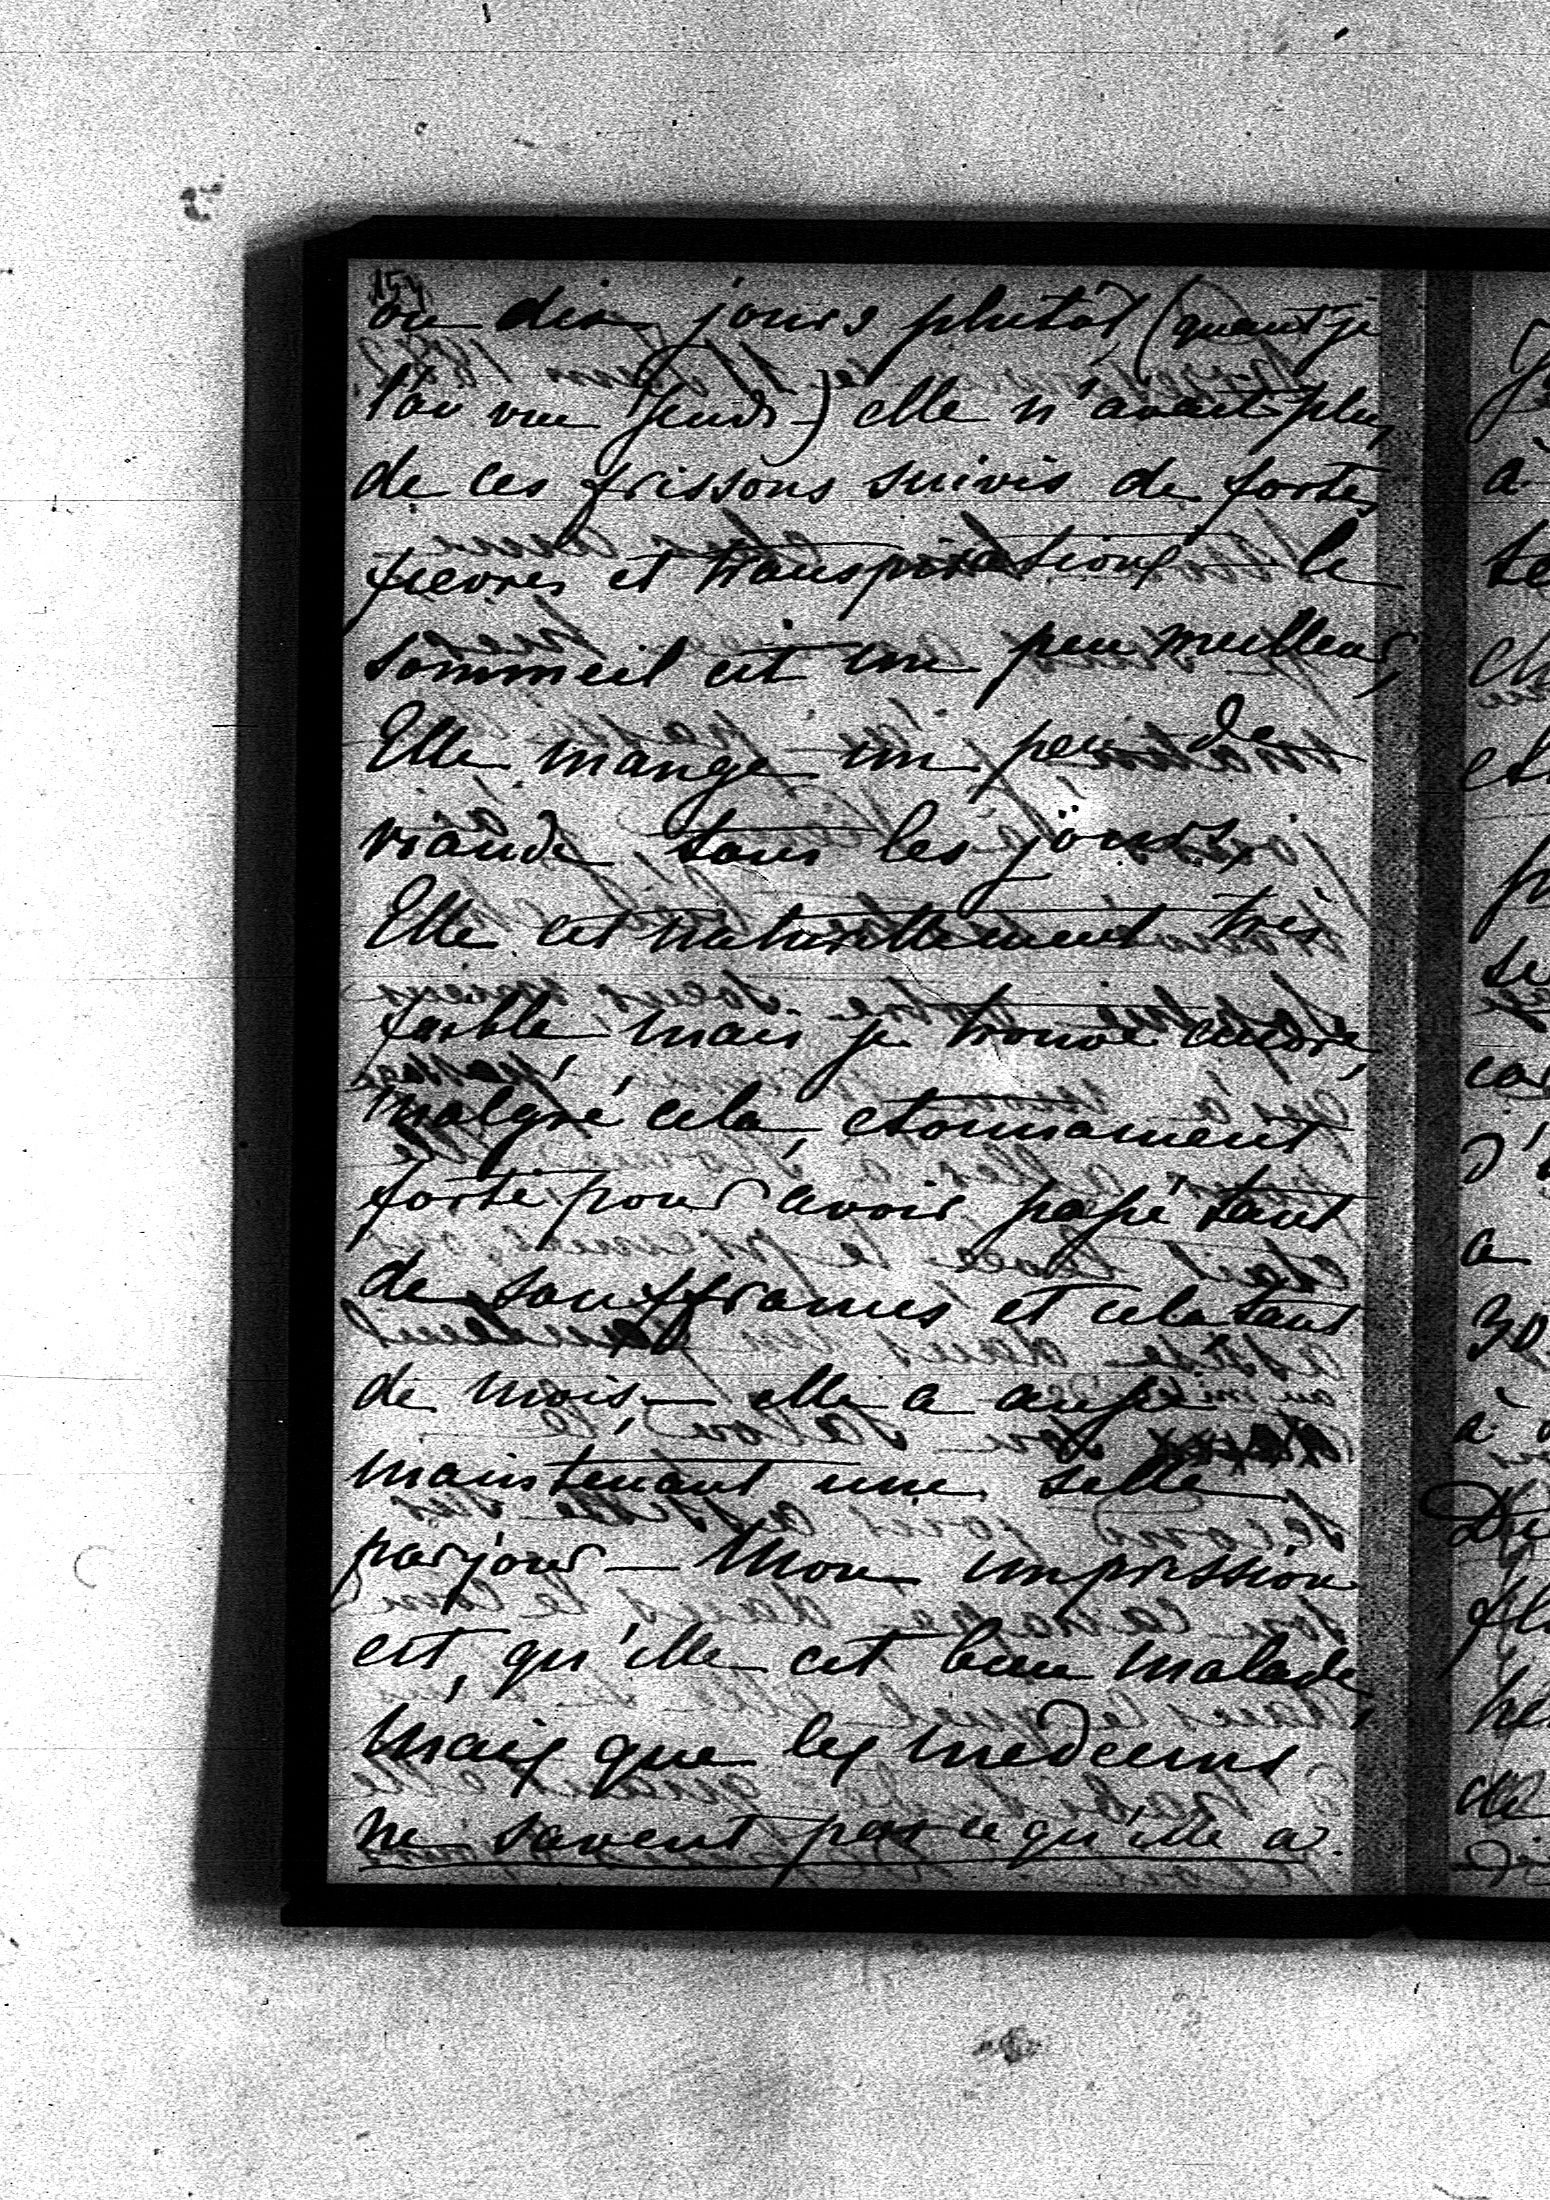 ou dix jours plutôt (quant je
l'ai vue Jeudi) elle n'avait plus
de ces frissons suivis de fortes
fievres et transpirations le
sommeil est un peu meilleur,
Elle mange un peu de
viande tous les jours,
Elle est naturellement très
faible, mais je trouve encore,
malgré cela, etonnament
forte pour avoir passé tant
de souffrances et cela tant
de mois, — elle a aussi
maintenant une selle
par jour — Mon impression
est, qu'elle est bien malade,
mais que les medecins
ne savent pas ce qu'elle a